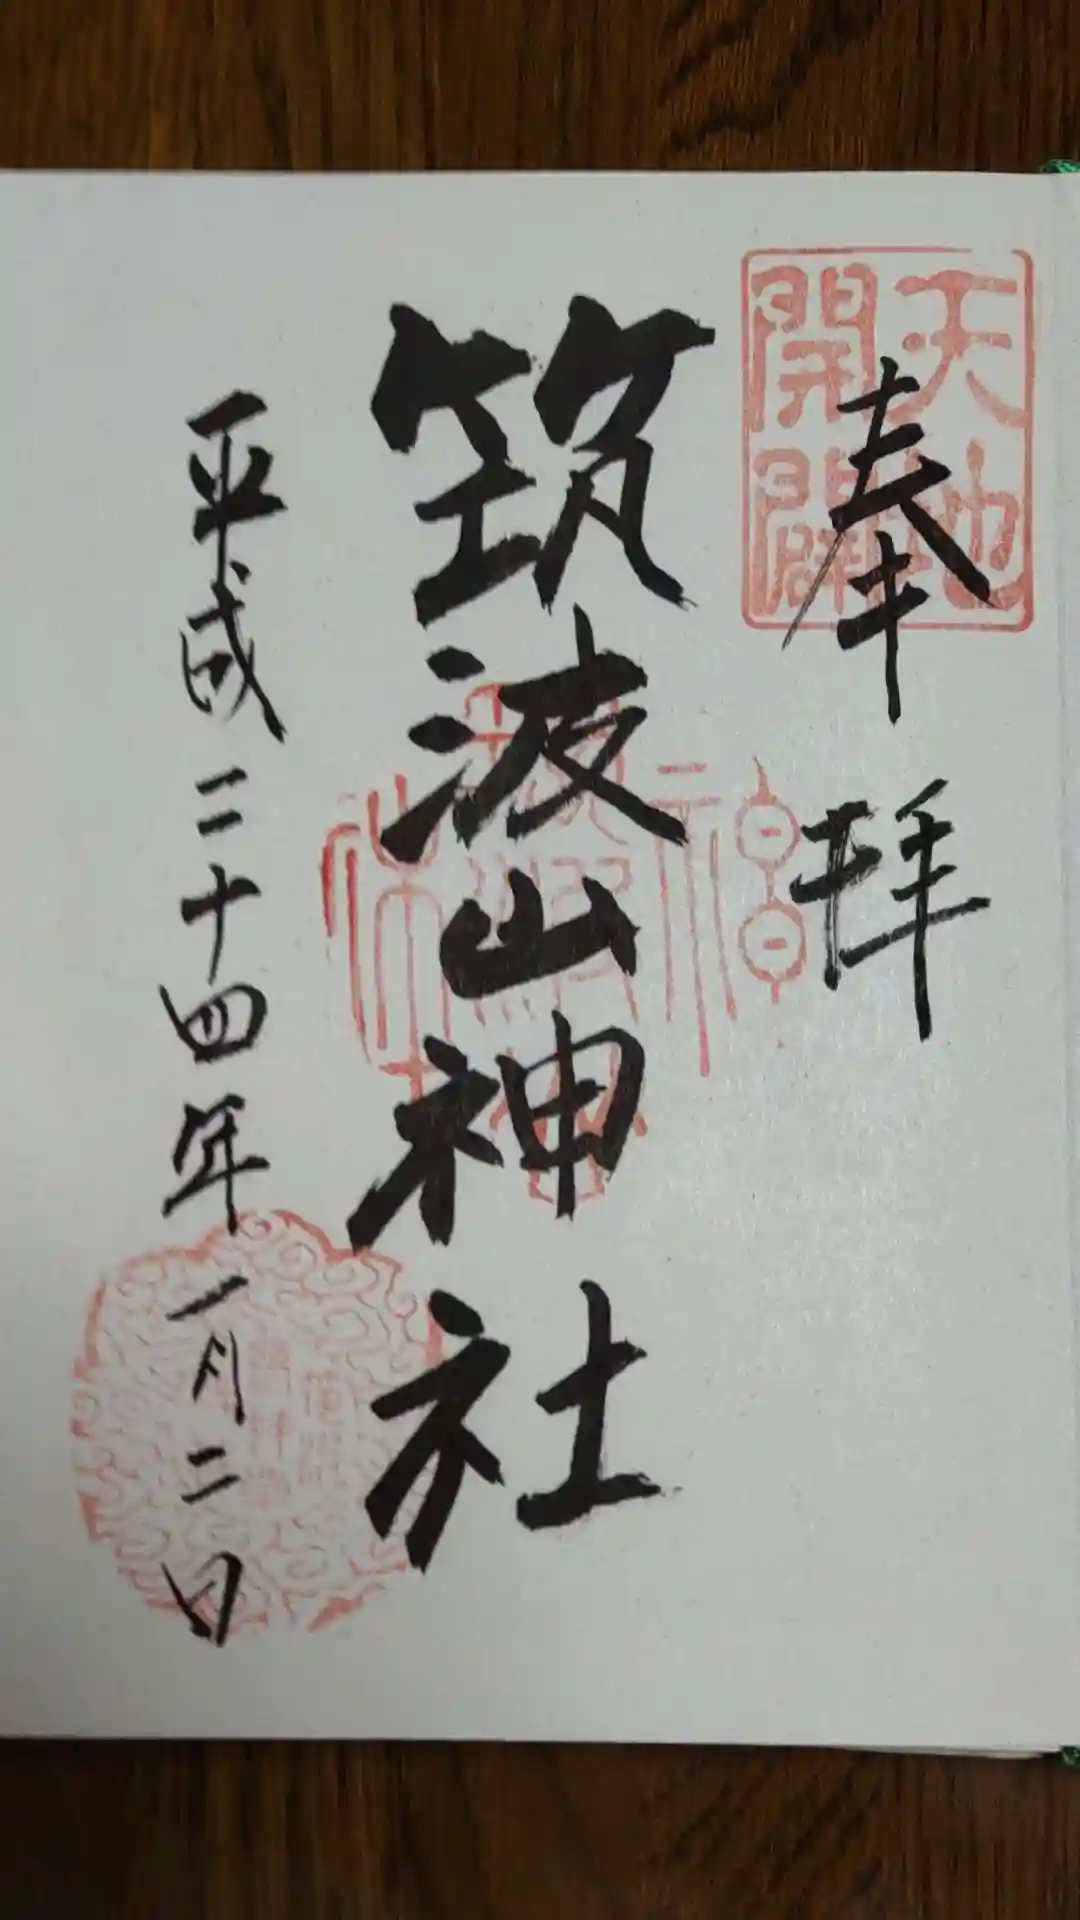 奉拝
天地
開闢
筑波山神社
平成二十四年一月二日